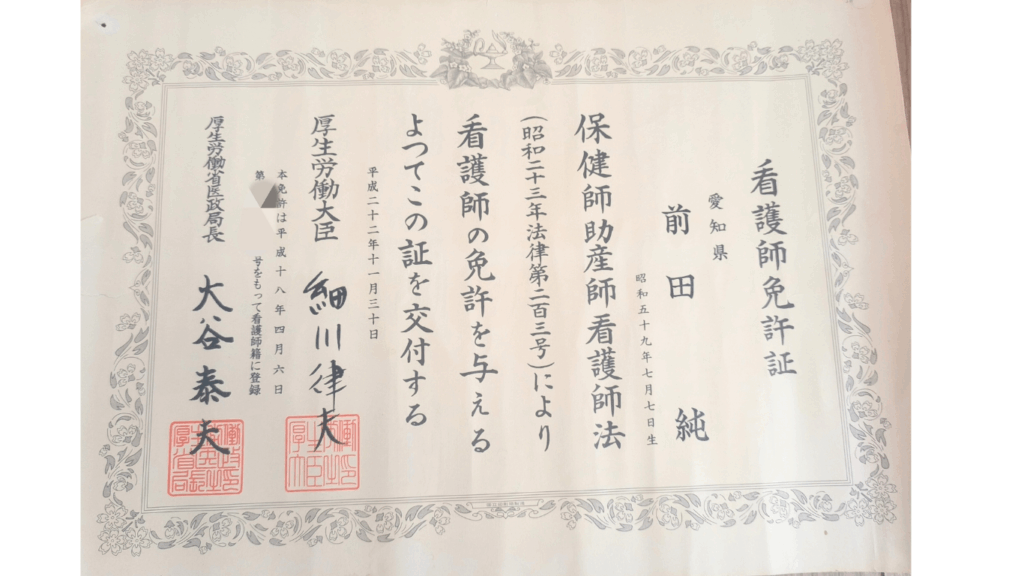 看護師免許証
愛知県
前田純
昭和五十九年七月七日生
保健師助産師看護師法
(昭和二十三年法律第二百三号)により
看護師の免許を与える
よつてこの証を交付する
平成二十二年十一月三十日
厚生労働大臣 細川律夫
本免許は平成十八年四月六日
第 号をもって看護師籍に登録
厚生労働省医政局長 大谷泰夫